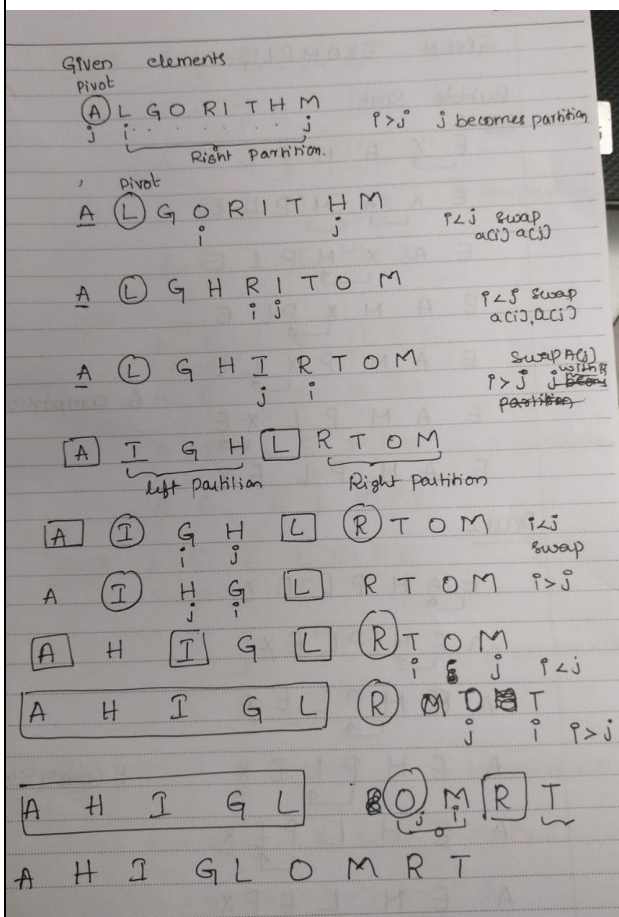 Given elements
Pivot
A L G O R I T H M i>j j becomes partition
j i j
Right Partition.
Pivot
A L G O R I T H M i<j swap
i j a(i) a(j)
A L G H R I T O M i<j swap
i j a(i), a(j)
A L G H I R T O M Swap A(j)
j i i>j j with
partition
A I G H L R T O M
left partition Right partition
A I G H L R T O M i<j
i j swap
A I H G L R T O M i>j
j i
A H I G L R T O M
i j i<j
A H I G L R M O T
j i i>j
A H I G L O M R T
j i
A H I G L O M R T